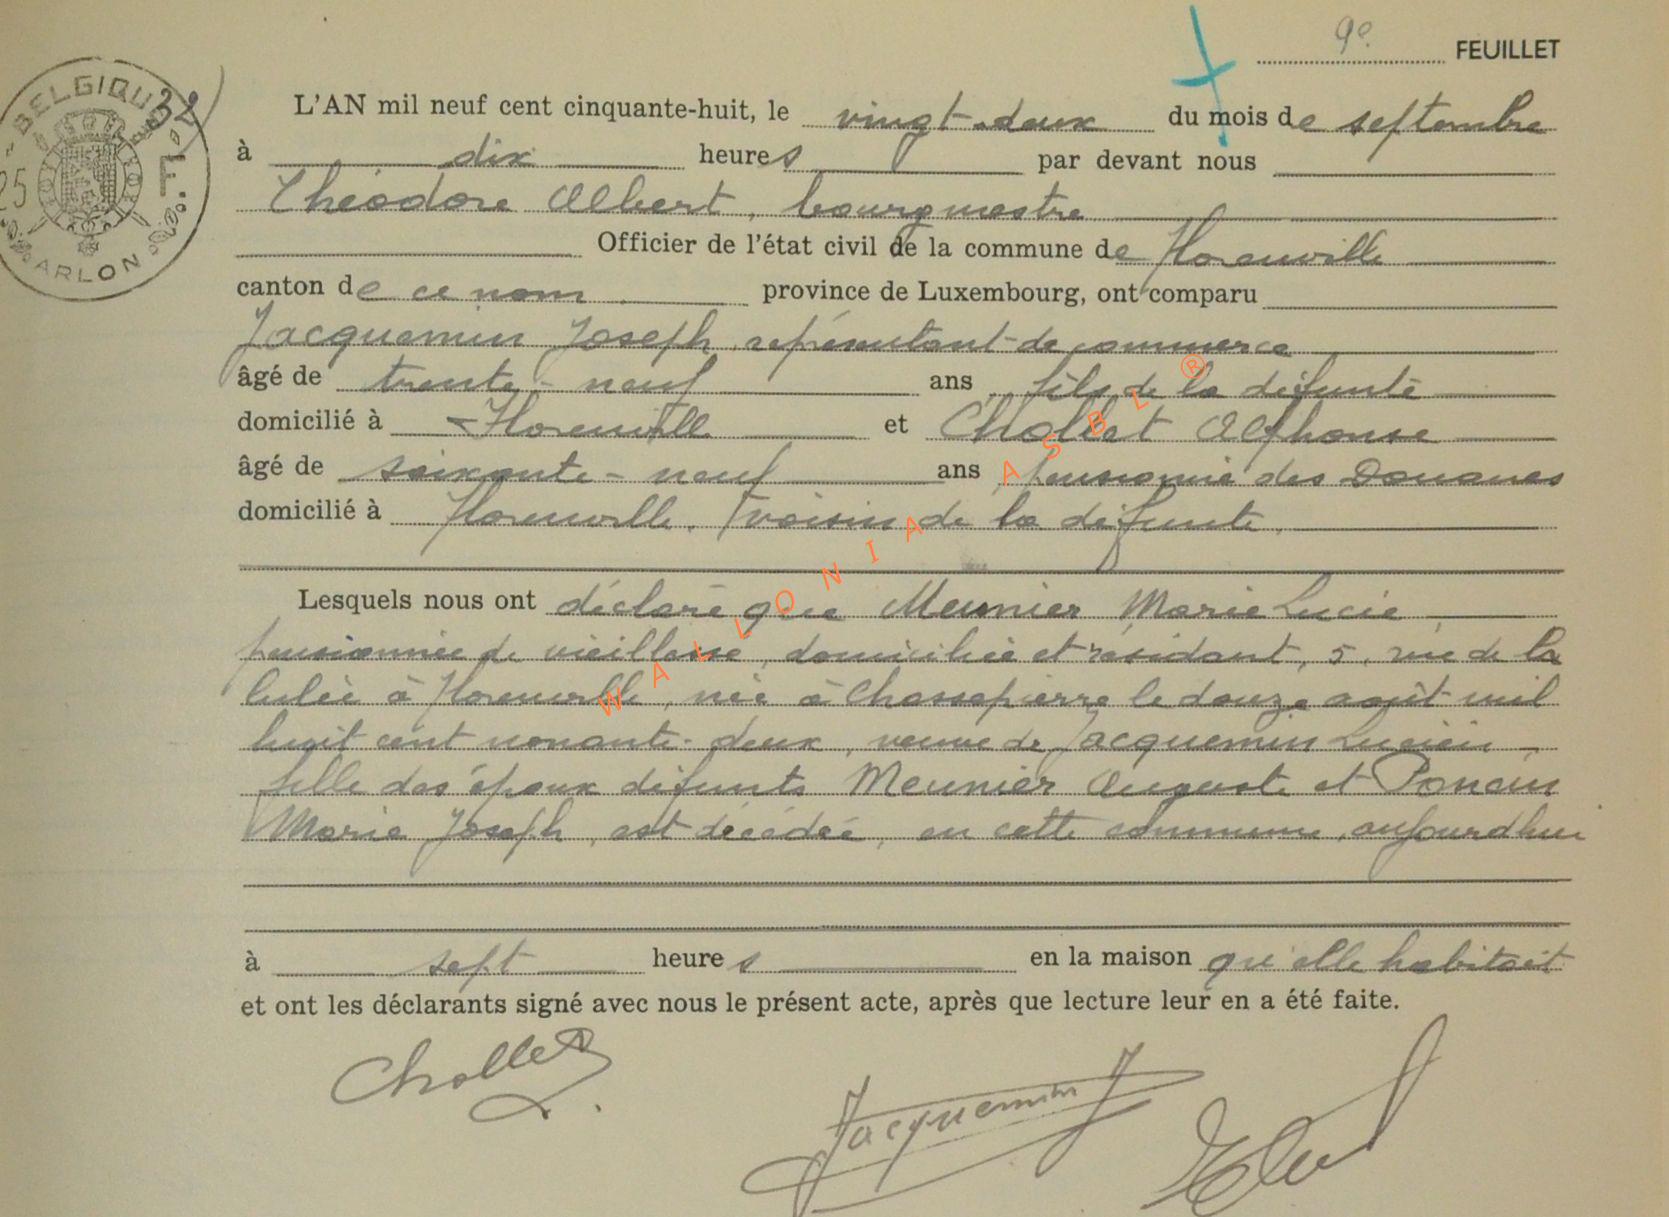 9e. FEUILLET
BELGIQUE
32
25 F.
ARLON
L'AN mil neuf cent cinquante-huit, le vingt-deux du mois de septembre
à dix heures par devant nous
Théodore Albert, bourgmestre
Officier de l'état civil de la commune de Florenville
canton de ce nom province de Luxembourg, ont comparu
Jacquemin Joseph, représentant de commerce
âgé de trente-neuf ans, fils de la défunte
domicilié à Florenville et Chollet Alphonse
âgé de soixante-neuf ans, pensionné des Douanes
domicilié à Florenville, voisin de la défunte,
Lesquels nous ont déclaré que Meunier Marie Lucie,
pensionnée de vieillesse, domiciliée et résidant, 5, rue de la
à Florenville, née à Chassepierre le douze août mil
huit cent nonante-deux, veuve de Jacquemin Lucien,
fille des époux défunts Meunier Auguste et Poncin
Marie Joseph, est décédée, en cette commune, aujourd'hui
à sept heures en la maison qu'elle habitait
et ont les déclarants signé avec nous le présent acte, après que lecture leur en a été faite.
Chollet
Jacquemin J
WALLONIA ASBL ®